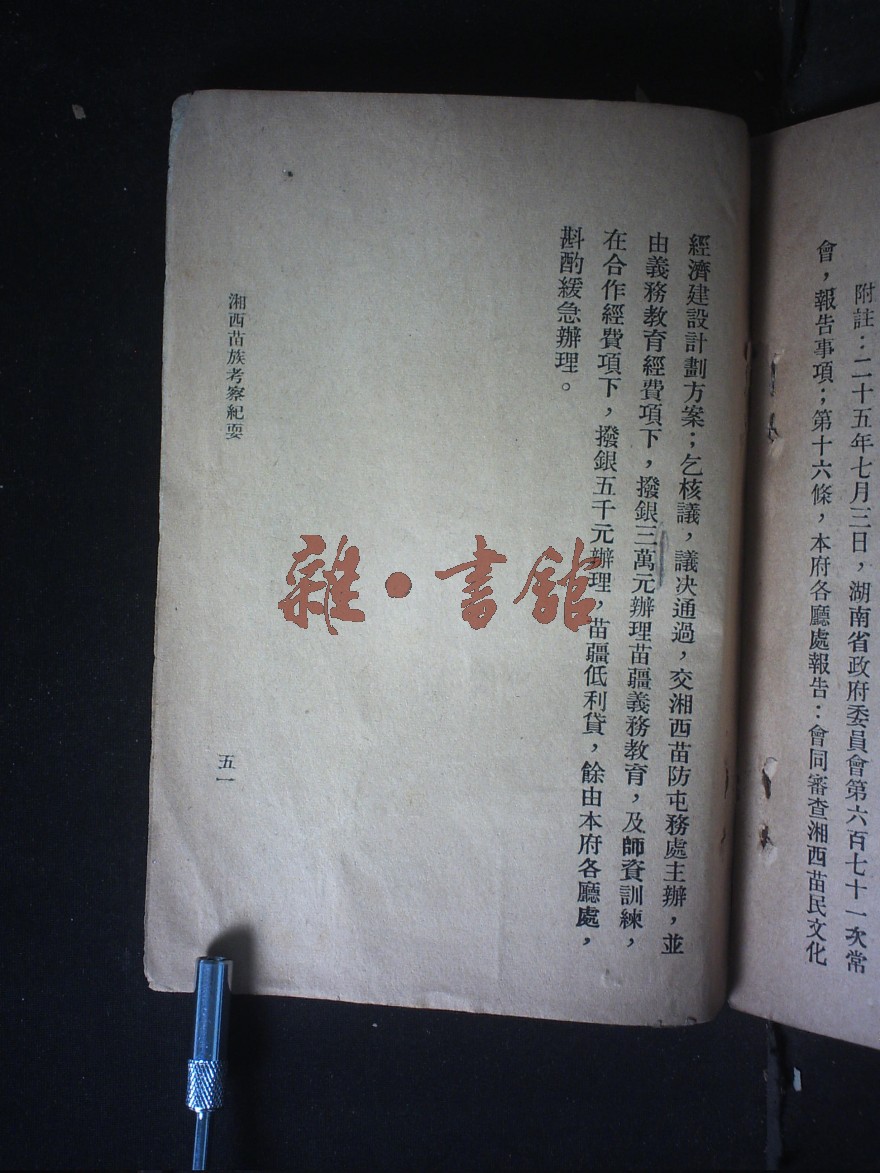 附註：二十五年七月三日，湖南省政府委員會第六百七十一次常
會，報告事項；第十六條，本府各廳處報告：會同審查湘西苗民文化
經濟建設計劃方案；乞核議，議决通過，交湘西苗防屯務處主辦，並
由義務教育經費項下，撥銀三萬元辦理苗疆義務教育，及師資訓練，
在合作經費項下，撥銀五千元辦理，苗疆低利貸，餘由本府各廳處，
斟酌緩急辦理。
湘西苗族考察紀要
五一
雜•書館